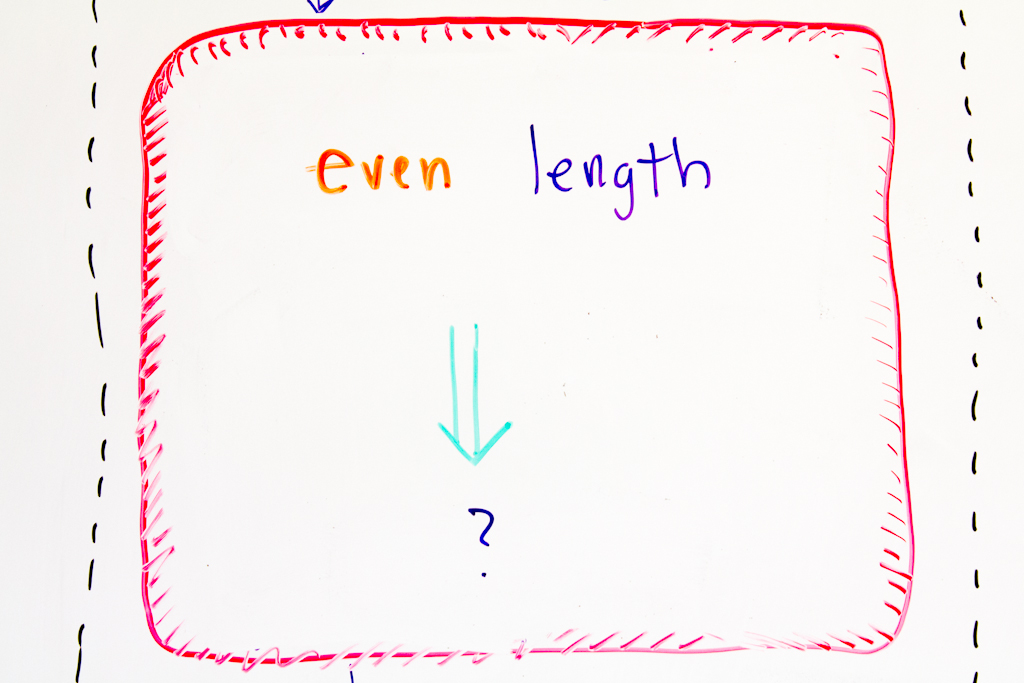 even length
?